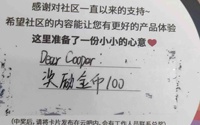 感谢对社区一直以来的支持~
希望社区的内容能让您有更好的产品体验
这里准备了一份小小的心意
Dear Cooper:
奖励金币100